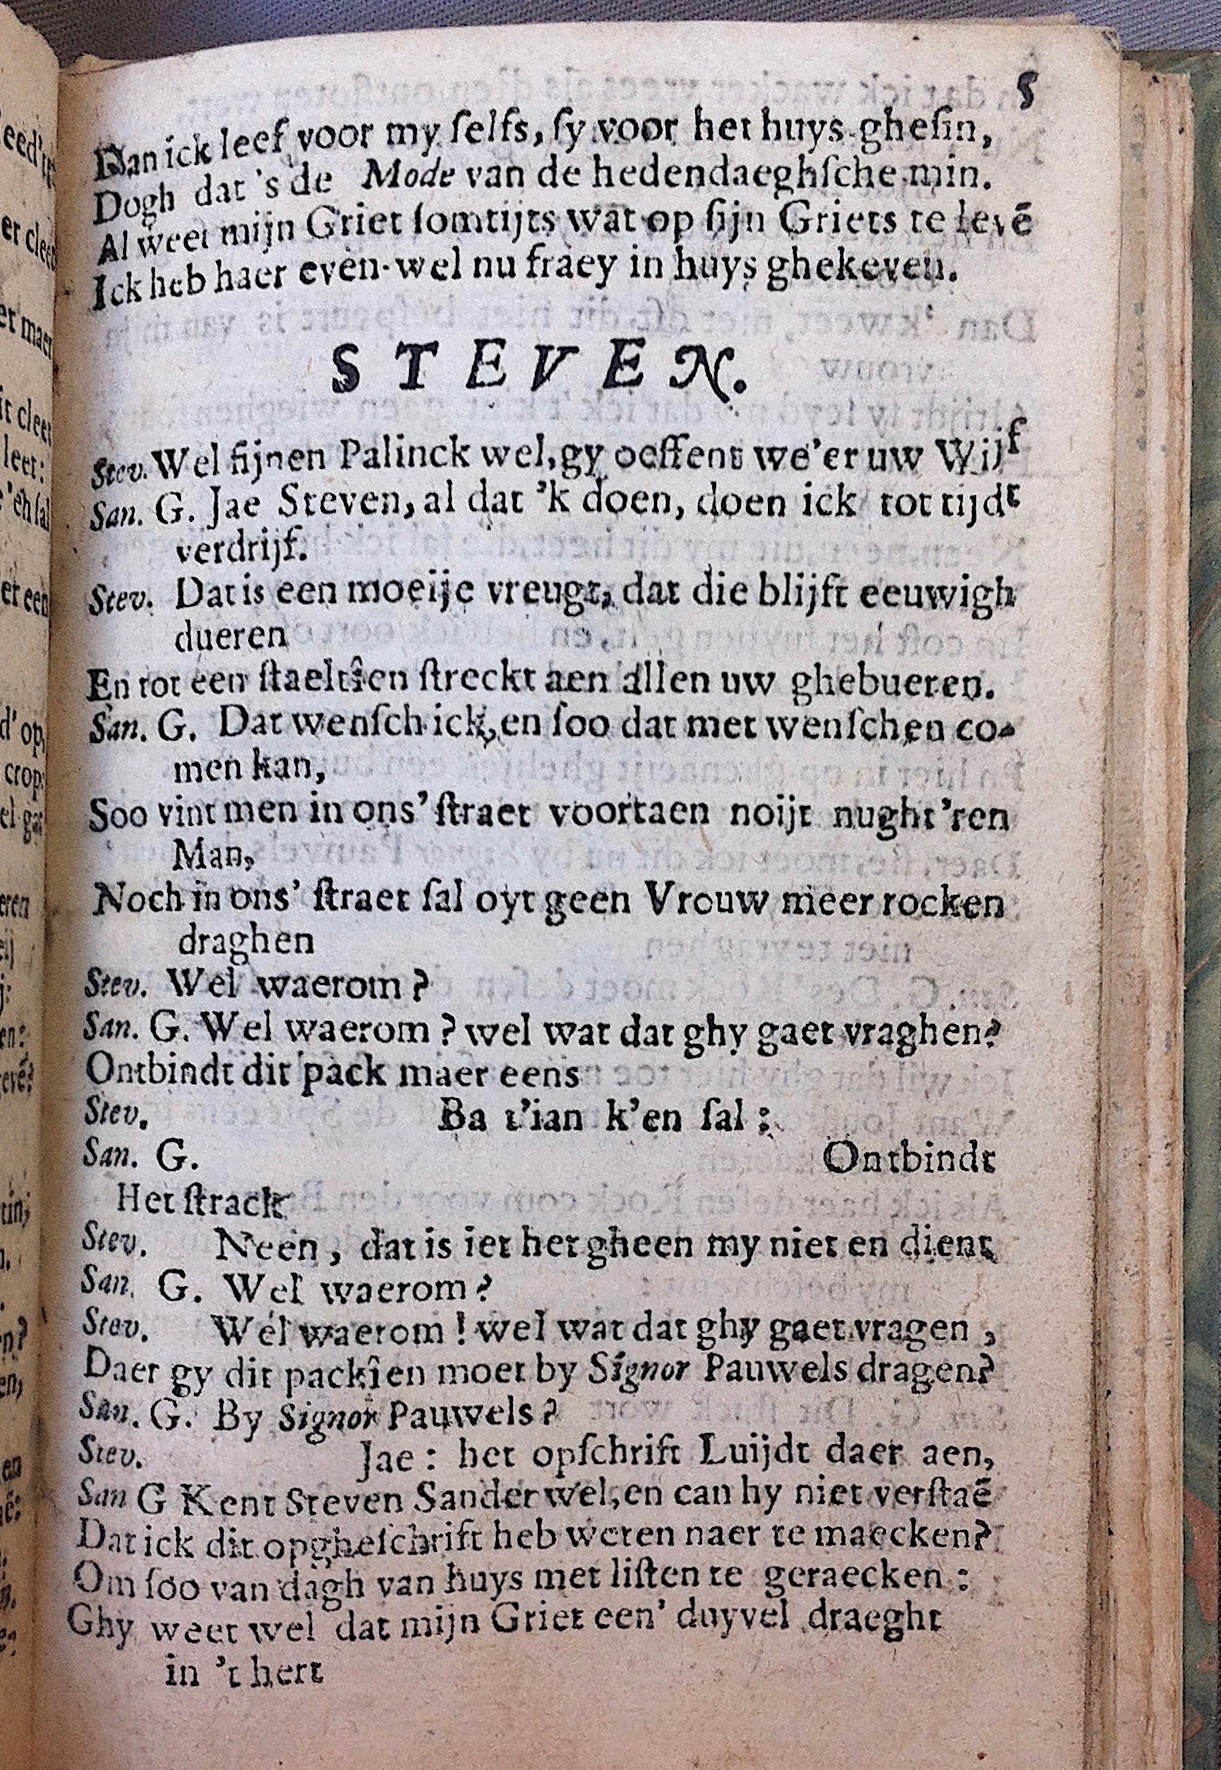 5
Dan ick leef voor my ſelfs, ſy voor het huys-gheſin,
Dogh dat 's de Mode van de hedendaeghſche min.
Al weet mijn Griet ſomtijts wat op ſijn Griets te levē
Ick heb haer even-wel nu fraey in huys ghekeven.
STEVEN.
Stev. Wel fijnen Palinck wel, gy oeffent we'er uw Wijf
San. G. Jae Steven, al dat 'k doen, doen ick tot tijdt
verdrijf.
Stev. Dat is een moeije vreugt, dat die blijft eeuwigh
dueren
En tot een ſtaeltîen ſtreckt aen allen uw ghebueren.
San. G. Dat wenſch ick, en ſoo dat met wenſchen co-
men kan,
Soo vint men in ons' ſtraet voortaen noijt nught'ren
Man,
Noch in ons' ſtraet ſal oyt geen Vrouw meer rocken
draghen
Stev. Wel waerom?
San. G. Wel waerom? wel wat dat ghy gaet vraghen?
Ontbindt dit pack maer eens
Stev. Ba t'ian k'en ſal:
San. G. Ontbindt
Het ſtrack
Stev. Neen, dat is iet het gheen my niet en dient
San. G. Wel waerom?
Stev. Wel waerom! wel wat dat ghy gaet vragen,
Daer gy dit packîen moet by Signor Pauwels dragen?
San. G. By Signor Pauwels?
Stev. Jae: het opſchrift Luijdt daer aen,
San G Kent Steven Sander wel, en can hy niet verſtaē
Dat ick dit opgheſchrift heb weten naer te maecken?
Om ſoo van dagh van huys met liſten te geraecken:
Ghy weet wel dat mijn Griet een' duyvel draeght
in 't hert